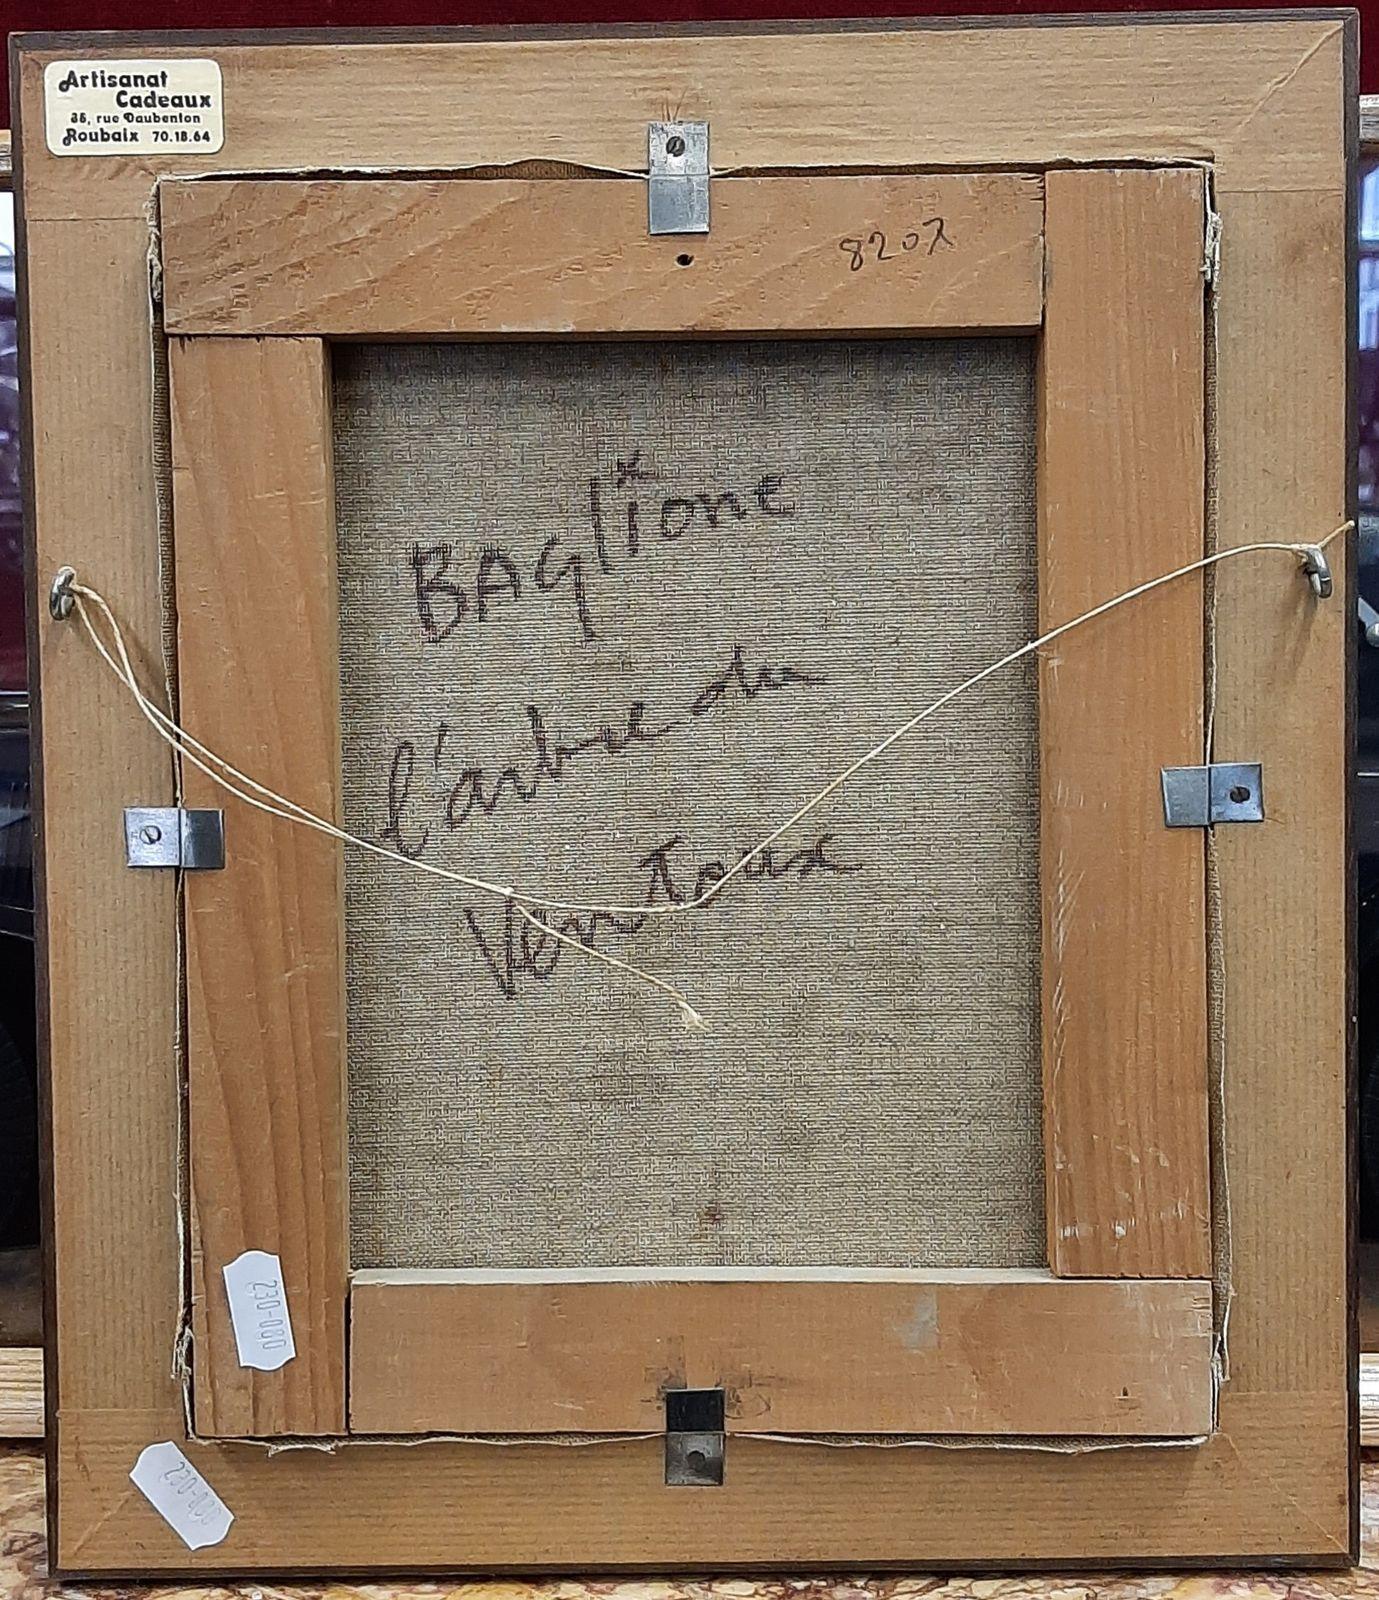 Artisanat
Cadeaux
35, rue Daubenton
Roubaix 70.18.64
8207
BAGlione
l'arbre du
Ventoux
230-080
230-080